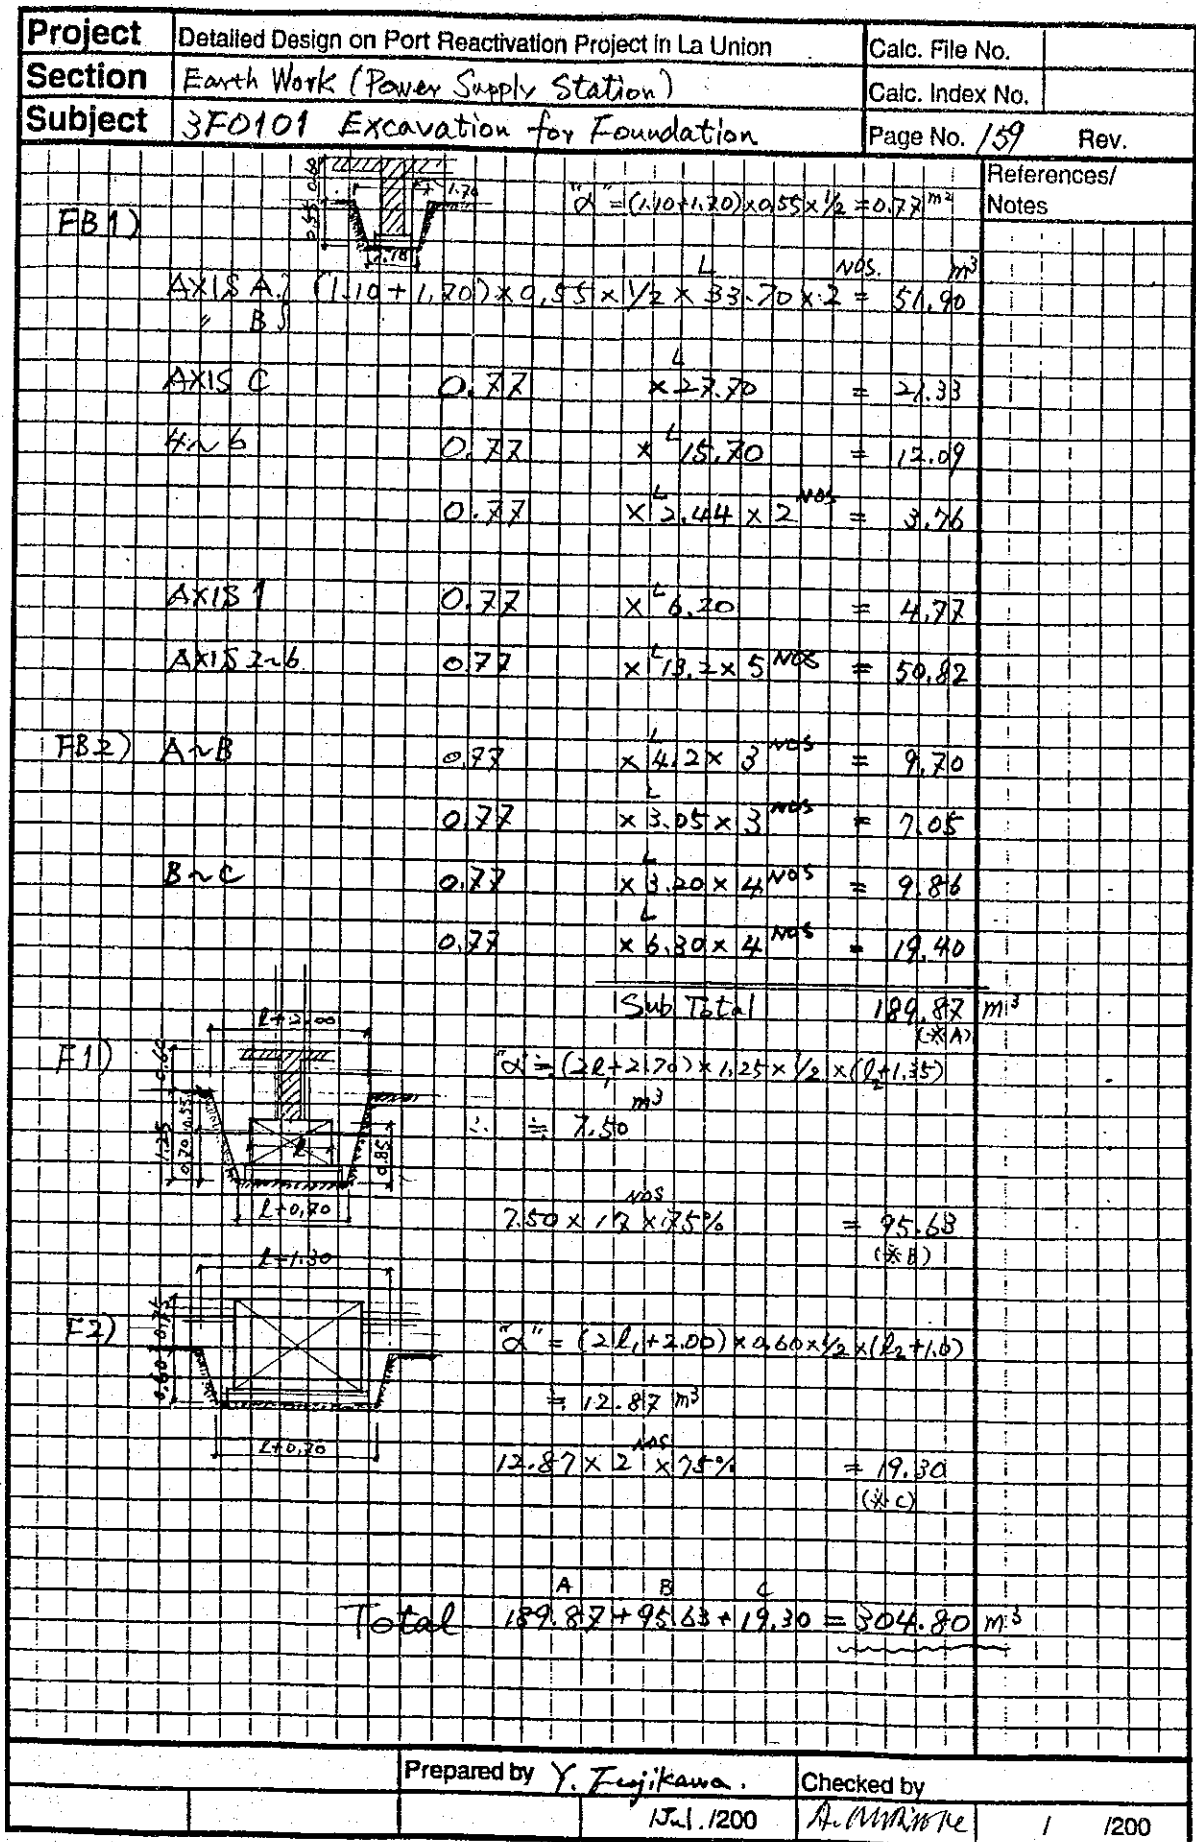 Project Detailed Design on Port Reactivation Project in La Union Calc. File No.
Section Earth Work (Power Supply Station) Calc. Index No.
Subject 3F0101 Excavation for Foundation Page No. 159 Rev.
References/
Notes
0.60 0.55 1.70
"α" = (1.10+1.70)×0.55×1/2 = 0.77 m²
FB1)
L NOS. m³
AXIS A } (1.10+1.70)×0.55×1/2×33.70×2 = 51.90
〃 B }
L
AXIS C 0.77 ×27.70 = 21.33
L
4~6 0.77 × 15.70 = 12.09
L NOS
0.77 × 2.44 × 2 = 3.76
L
AXIS 1 0.77 × 6.20 = 4.77
L NOS
AXIS 2~6 0.77 × 13.2 × 5 = 50.82
L NOS
FB2) A~B 0.77 × 4.2 × 3 = 9.70
L NOS
0.77 × 3.05 × 3 = 7.05
L NOS
B~C 0.77 × 3.20 × 4 = 9.86
L NOS
0.77 × 6.30 × 4 = 19.40
Sub Total 189.87 m³
(※A)
F1)
l+2.00
0.60
1.25 0.70 0.55 l 0.85
l+0.70
"α" ≒ (2l₁+2.70)×1.25×1/2×(l₂+1.35)
m³
∴ ≒ 7.50
NOS
7.50 × 17 × 75% = 95.63
(※B)
F2)
l+1.30
0.60
l+0.70
"α" = (2l₁+2.00)×0.60×1/2×(l₂+1.0)
≒ 12.87 m³
NOS
12.87 × 2 × 75% = 19.30
(※C)
A B C
Total 189.87 + 95.63 + 19.30 = 304.80 m³
Prepared by Y. Fujikawa. Checked by
/Jul./200 / /200